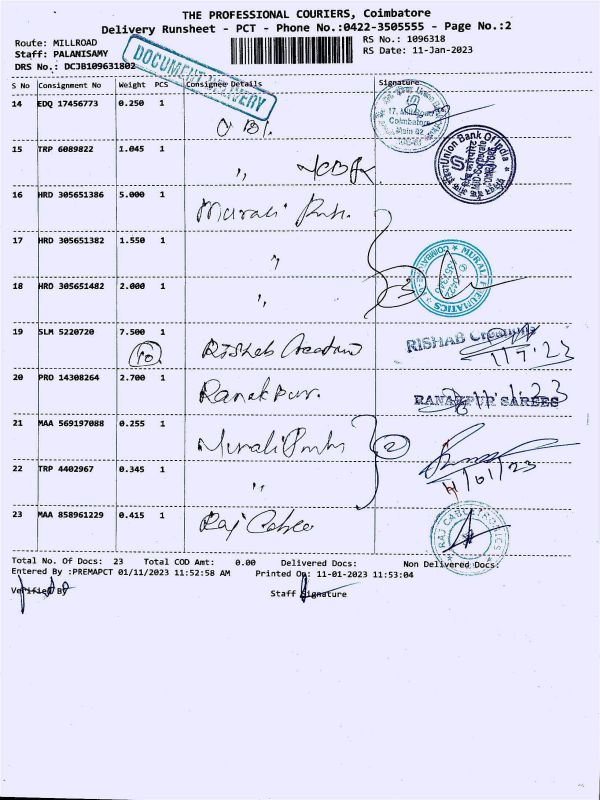 THE PROFESSIONAL COURIERS, Coimbatore
Delivery Runsheet - PCT - Phone No.:0422-3505555 - Page No.:2
Route: MILLROAD
RS No.: 1096318
Staff: PALANISAMY
RS Date: 11-Jan-2023
DRS No.: DCJB109631802
DOCUMENT DELIVERY
S No Consignment No Weight PCS Consignee Details Signature
14 EDQ 17456773 0.250 1
17. Mill Road
Coimbatore
Main 02
15 TRP 6089822 1.045 1 ,,
Union Bank Of India
16 HRD 305651386 5.000 1 Murali
17 HRD 305651382 1.550 1 ,,
18 HRD 305651482 2.000 1 ,,
3
19 SLM 5220720 7.500 1 Rishab Creation RISHAB Creations
10
20 PRO 14308264 2.700 1 Ranakpur. RANAKPUR SAREES
21 MAA 569197088 0.255 1 Murali 2
22 TRP 4402967 0.345 1 ,,
11/01/23
23 MAA 858961229 0.415 1 Raj Cable
RAJ CABLETRONICS
Total No. Of Docs: 23 Total COD Amt: 0.00 Delivered Docs: Non Delivered Docs:
Entered By :PREMAPCT 01/11/2023 11:52:58 AM Printed On: 11-01-2023 11:53:04
Verified By Staff Signature